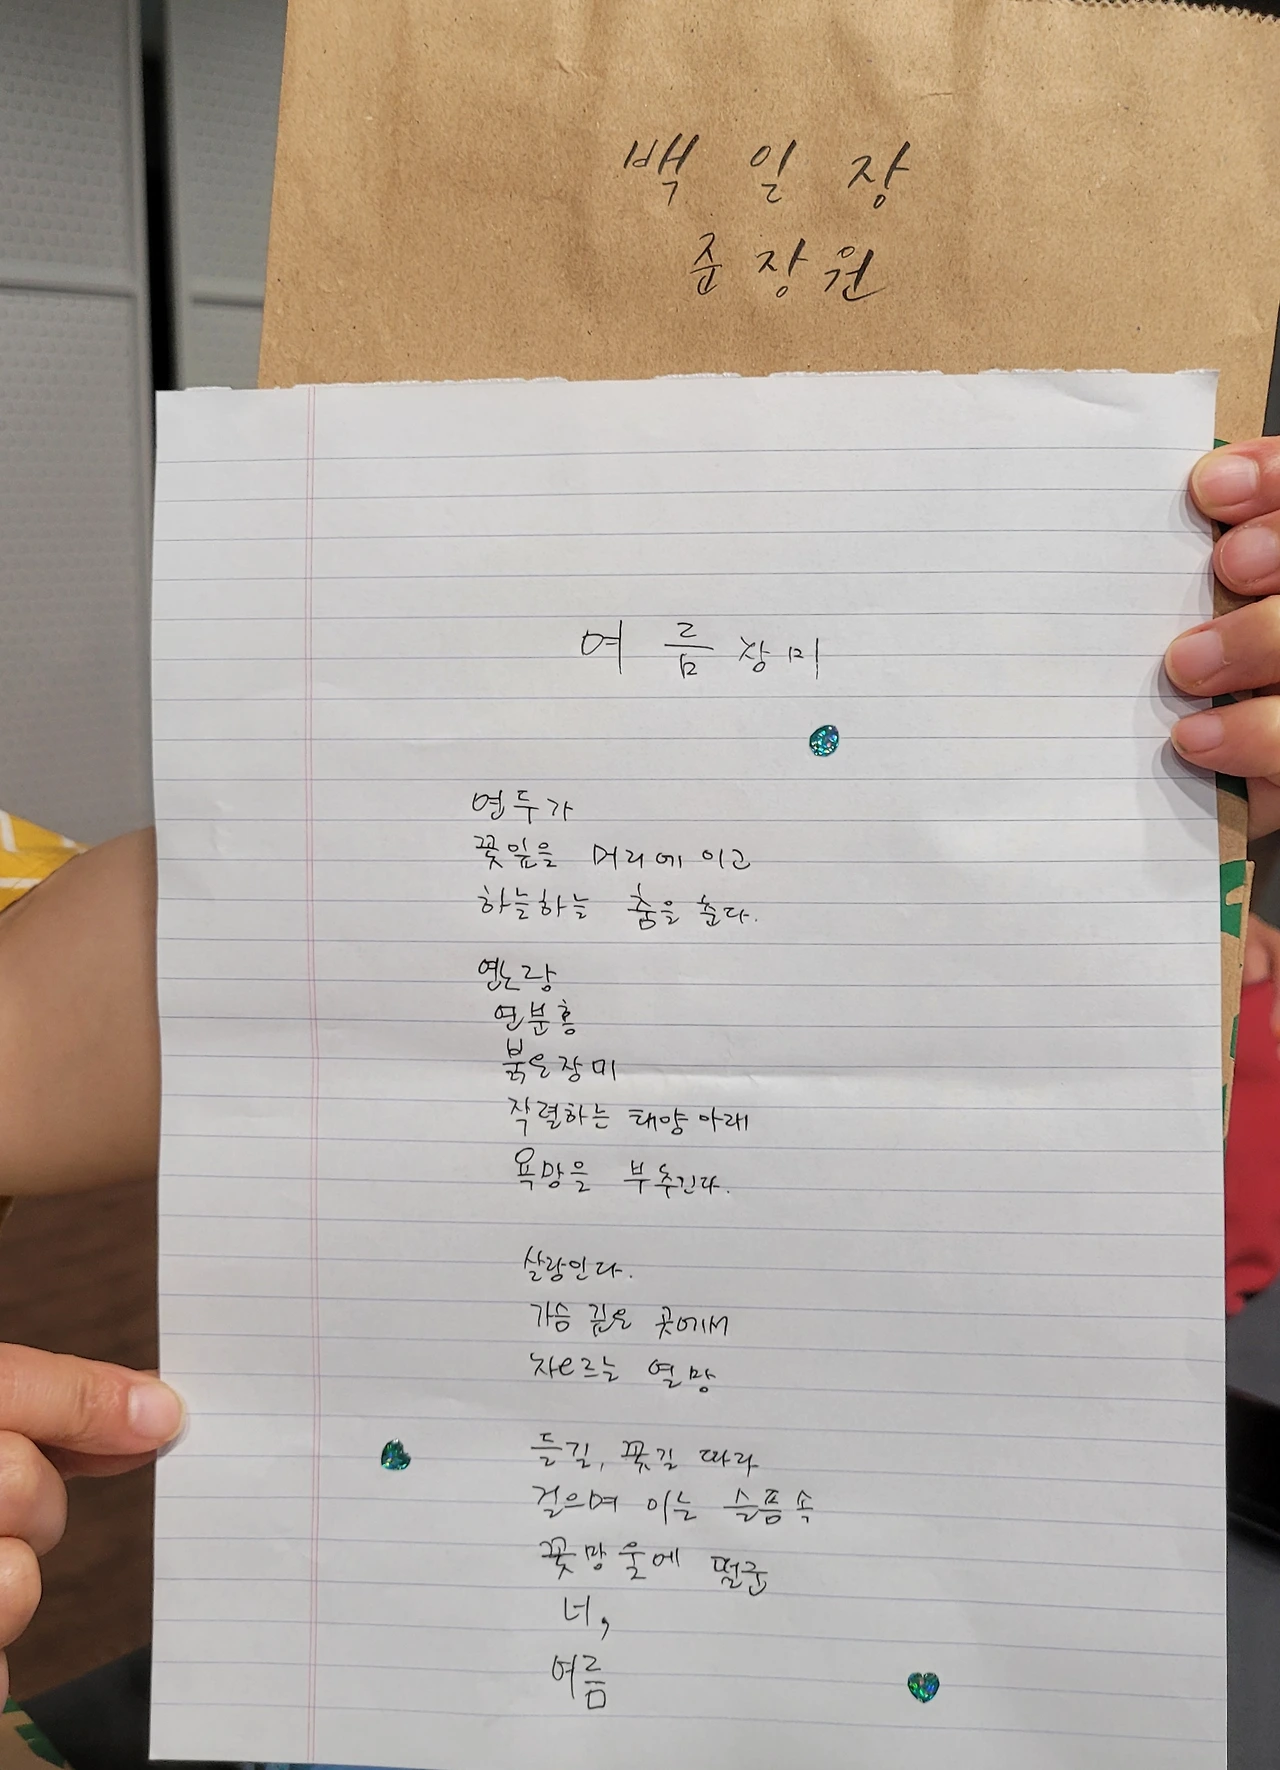 백일장
준장원
여름장미
연두가
꽃잎을 머리에 이고
하늘하늘 춤을 춘다.
연노랑
연분홍
붉은장미
작렬하는 태양아래
욕망을 부추긴다.
살랑인다.
가슴 깊은 곳에서
차오르는 열망
들길, 꽃길 따라
걸으며 이는 슬픔 속
꽃망울에 떨군
너,
여름